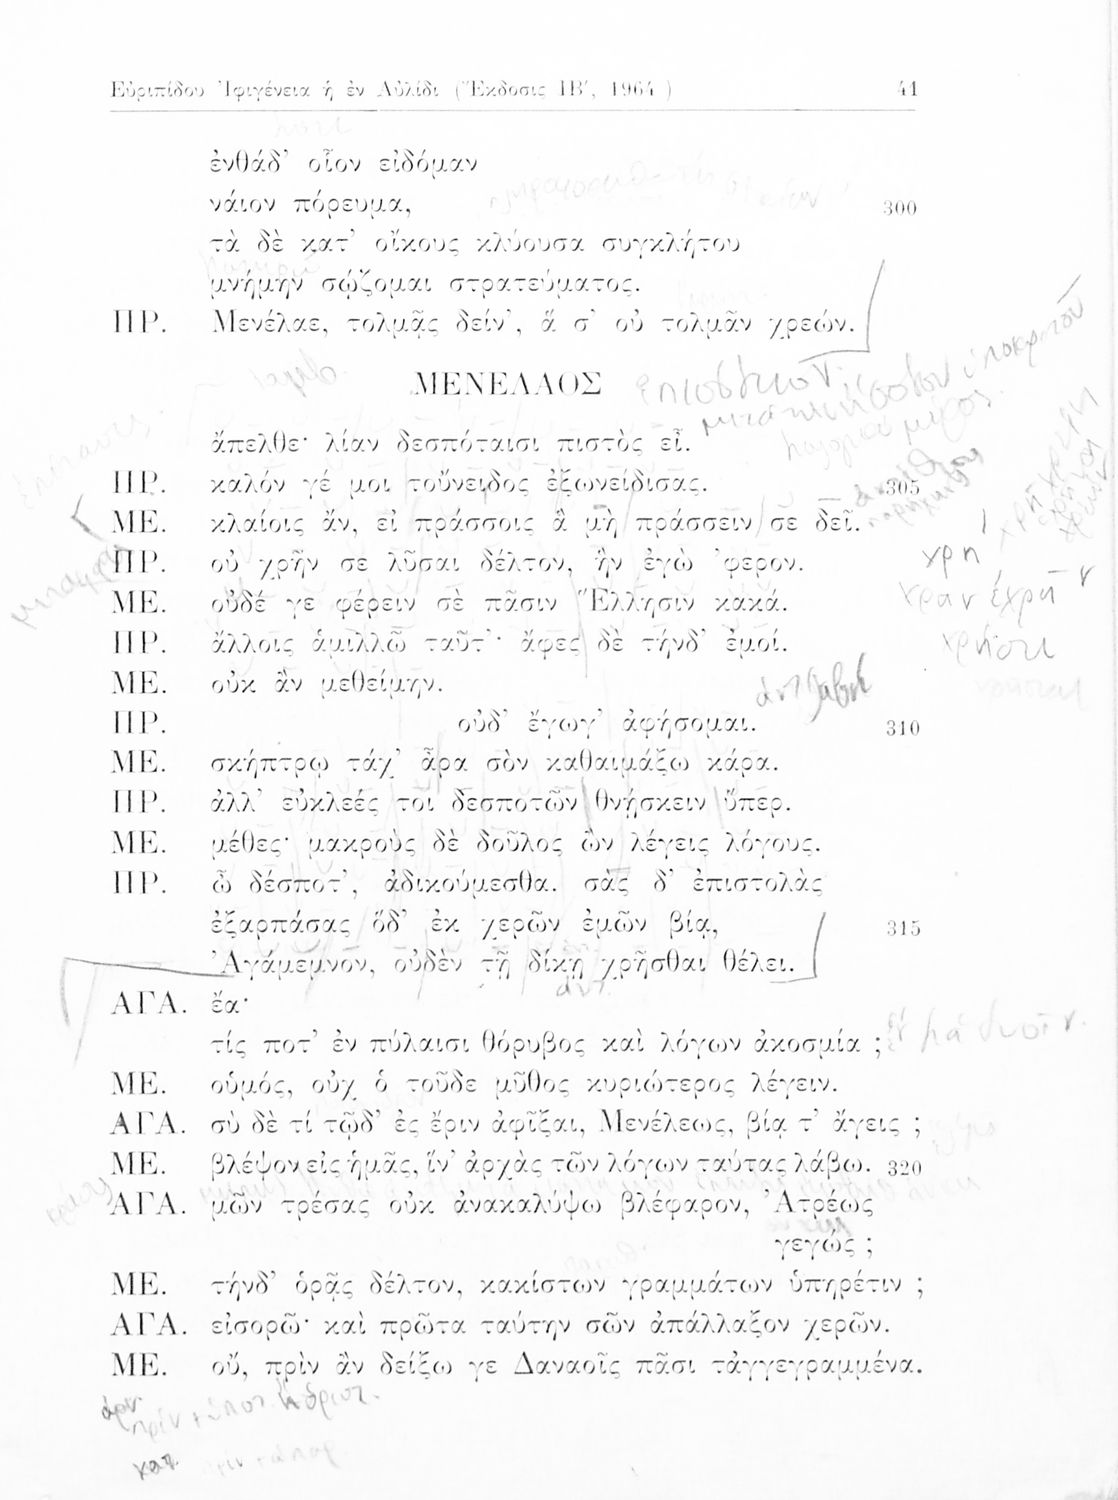 Εὐριπίδου Ἰφιγένεια ἡ ἐν Αὐλίδι (Ἔκδοσις ΙΒ′, 1964) 41
ἐνθάδ' οἷον εἰδόμαν
νάιον πόρευμα, 300
τὰ δὲ κατ' οἴκους κλύουσα συγκλήτου
μνήμην σῴζομαι στρατεύματος.
ΠΡ. Μενέλαε, τολμᾷς δείν', ἅ σ' οὐ τολμᾶν χρεών.
ΜΕΝΕΛΑΟΣ
ἄπελθε· λίαν δεσπόταισι πιστὸς εἶ.
ΠΡ. καλόν γέ μοι τοὔνειδος ἐξωνείδισας. 305
ΜΕ. κλαίοις ἄν, εἰ πράσσοις ἃ μὴ πράσσειν σε δεῖ.
ΠΡ. οὐ χρῆν σε λῦσαι δέλτον, ἣν ἐγὼ 'φερον.
ΜΕ. οὐδέ γε φέρειν σὲ πᾶσιν Ἕλλησιν κακά.
ΠΡ. ἄλλοις ἁμιλλῶ ταῦτ'· ἄφες δὲ τήνδ' ἐμοί.
ΜΕ. οὐκ ἂν μεθείμην.
ΠΡ. οὐδ' ἔγωγ' ἀφήσομαι. 310
ΜΕ. σκήπτρῳ τάχ' ἆρα σὸν καθαιμάξω κάρα.
ΠΡ. ἀλλ' εὐκλεές τοι δεσποτῶν θνῄσκειν ὕπερ.
ΜΕ. μέθες· μακροὺς δὲ δοῦλος ὢν λέγεις λόγους.
ΠΡ. ὦ δέσποτ', ἀδικούμεσθα. σὰς δ' ἐπιστολὰς
ἐξαρπάσας ὅδ' ἐκ χερῶν ἐμῶν βίᾳ, 315
Ἀγάμεμνον, οὐδὲν τῇ δίκῃ χρῆσθαι θέλει.
ΑΓΑ. ἔα·
τίς ποτ' ἐν πύλαισι θόρυβος καὶ λόγων ἀκοσμία ;
ΜΕ. οὑμός, οὐχ ὁ τοῦδε μῦθος κυριώτερος λέγειν.
ΑΓΑ. σὺ δὲ τί τῷδ' ἐς ἔριν ἀφῖξαι, Μενέλεως, βίᾳ τ' ἄγεις ;
ΜΕ. βλέψον εἰς ἡμᾶς, ἵν' ἀρχὰς τῶν λόγων ταύτας λάβω. 320
ΑΓΑ. μῶν τρέσας οὐκ ἀνακαλύψω βλέφαρον, Ἀτρέως
γεγώς ;
ΜΕ. τήνδ' ὁρᾷς δέλτον, κακίστων γραμμάτων ὑπηρέτιν ;
ΑΓΑ. εἰσορῶ· καὶ πρῶτα ταύτην σῶν ἀπάλλαξον χερῶν.
ΜΕ. οὔ, πρὶν ἂν δείξω γε Δαναοῖς πᾶσι τἀγγεγραμμένα.